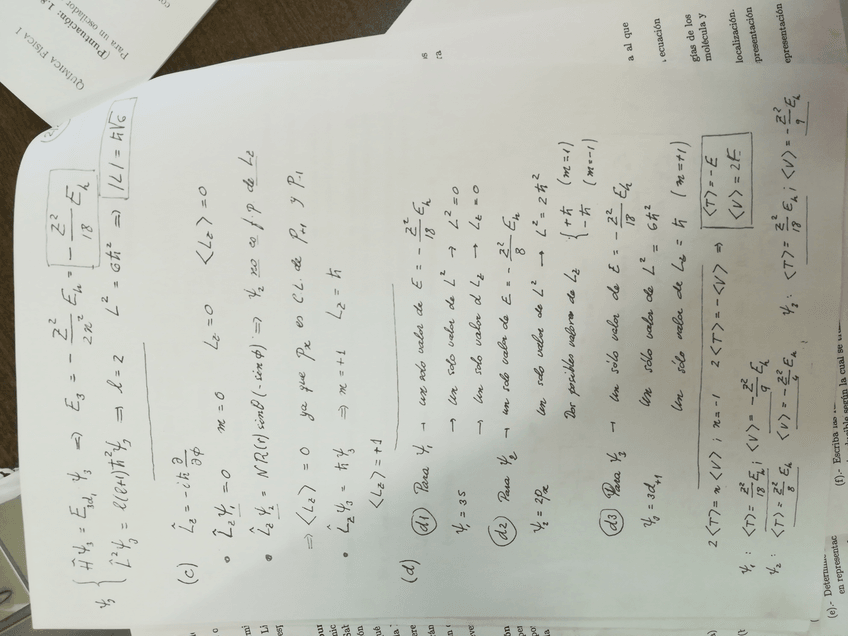 QUÍMICA FÍSICA I
(Puntuación: 1.8
Para un oscilador
ψ₃ { Ĥψ₃ = E₃d₁ ψ₃ ⇒ E₃ = -Z²/2n² E_h = -Z²/18 E_h
L̂²ψ₃ = l(l+1)ħ²ψ₃ ⇒ l = 2 L² = 6ħ² ⇒ |L| = ħ√6
(c) L̂z = -iħ ∂/∂φ
• L̂zψ₁ = 0 m = 0 Lz = 0 ⟨Lz⟩ = 0
• L̂zψ₂ = N R(r) sinθ (-sinφ) ⇒ ψ₂ no es f.p de Lz
⇒ ⟨Lz⟩ = 0 ya que Px es CL. de P₊₁ y P₋₁
• L̂zψ₃ = ħψ₃ ⇒ m = +1 Lz = ħ
⟨Lz⟩ = +1
(d) d1) Para ψ₁ → un solo valor de E = -Z²/18 E_h
ψ₁ = 3s → un solo valor de L² → L² = 0
→ un solo valor d Lz → Lz = 0
d2) Para ψ₂ → un solo valor de E = -Z²/8 E_h
ψ₂ = 2Px un solo valor de L² → L² = 2ħ²
Dos posibles valores de Lz { +ħ (m=1)
-ħ (m=-1)
d3) Para ψ₃ → un sólo valor de E = -Z²/18 E_h
ψ₃ = 3d₊₁ un sólo valor de L² = 6ħ²
un sólo valor de Lz = ħ (m=+1)
2⟨T⟩ = n⟨V⟩ ; n = -1 2⟨T⟩ = -⟨V⟩ ⇒ ⟨T⟩ = -E
⟨V⟩ = 2E
ψ₁ : ⟨T⟩ = Z²/18 E_h ; ⟨V⟩ = -Z²/9 E_h
ψ₂ : ⟨T⟩ = Z²/8 E_h ⟨V⟩ = -Z²/4 E_h ; ψ₃ : ⟨T⟩ = Z²/18 E_h ; ⟨V⟩ = -Z²/9 E_h
a al que
ecuación
gías de los
molécula y
localización.
presentación
epresentación
(e).- Determin
en representac
(f).- Escriba